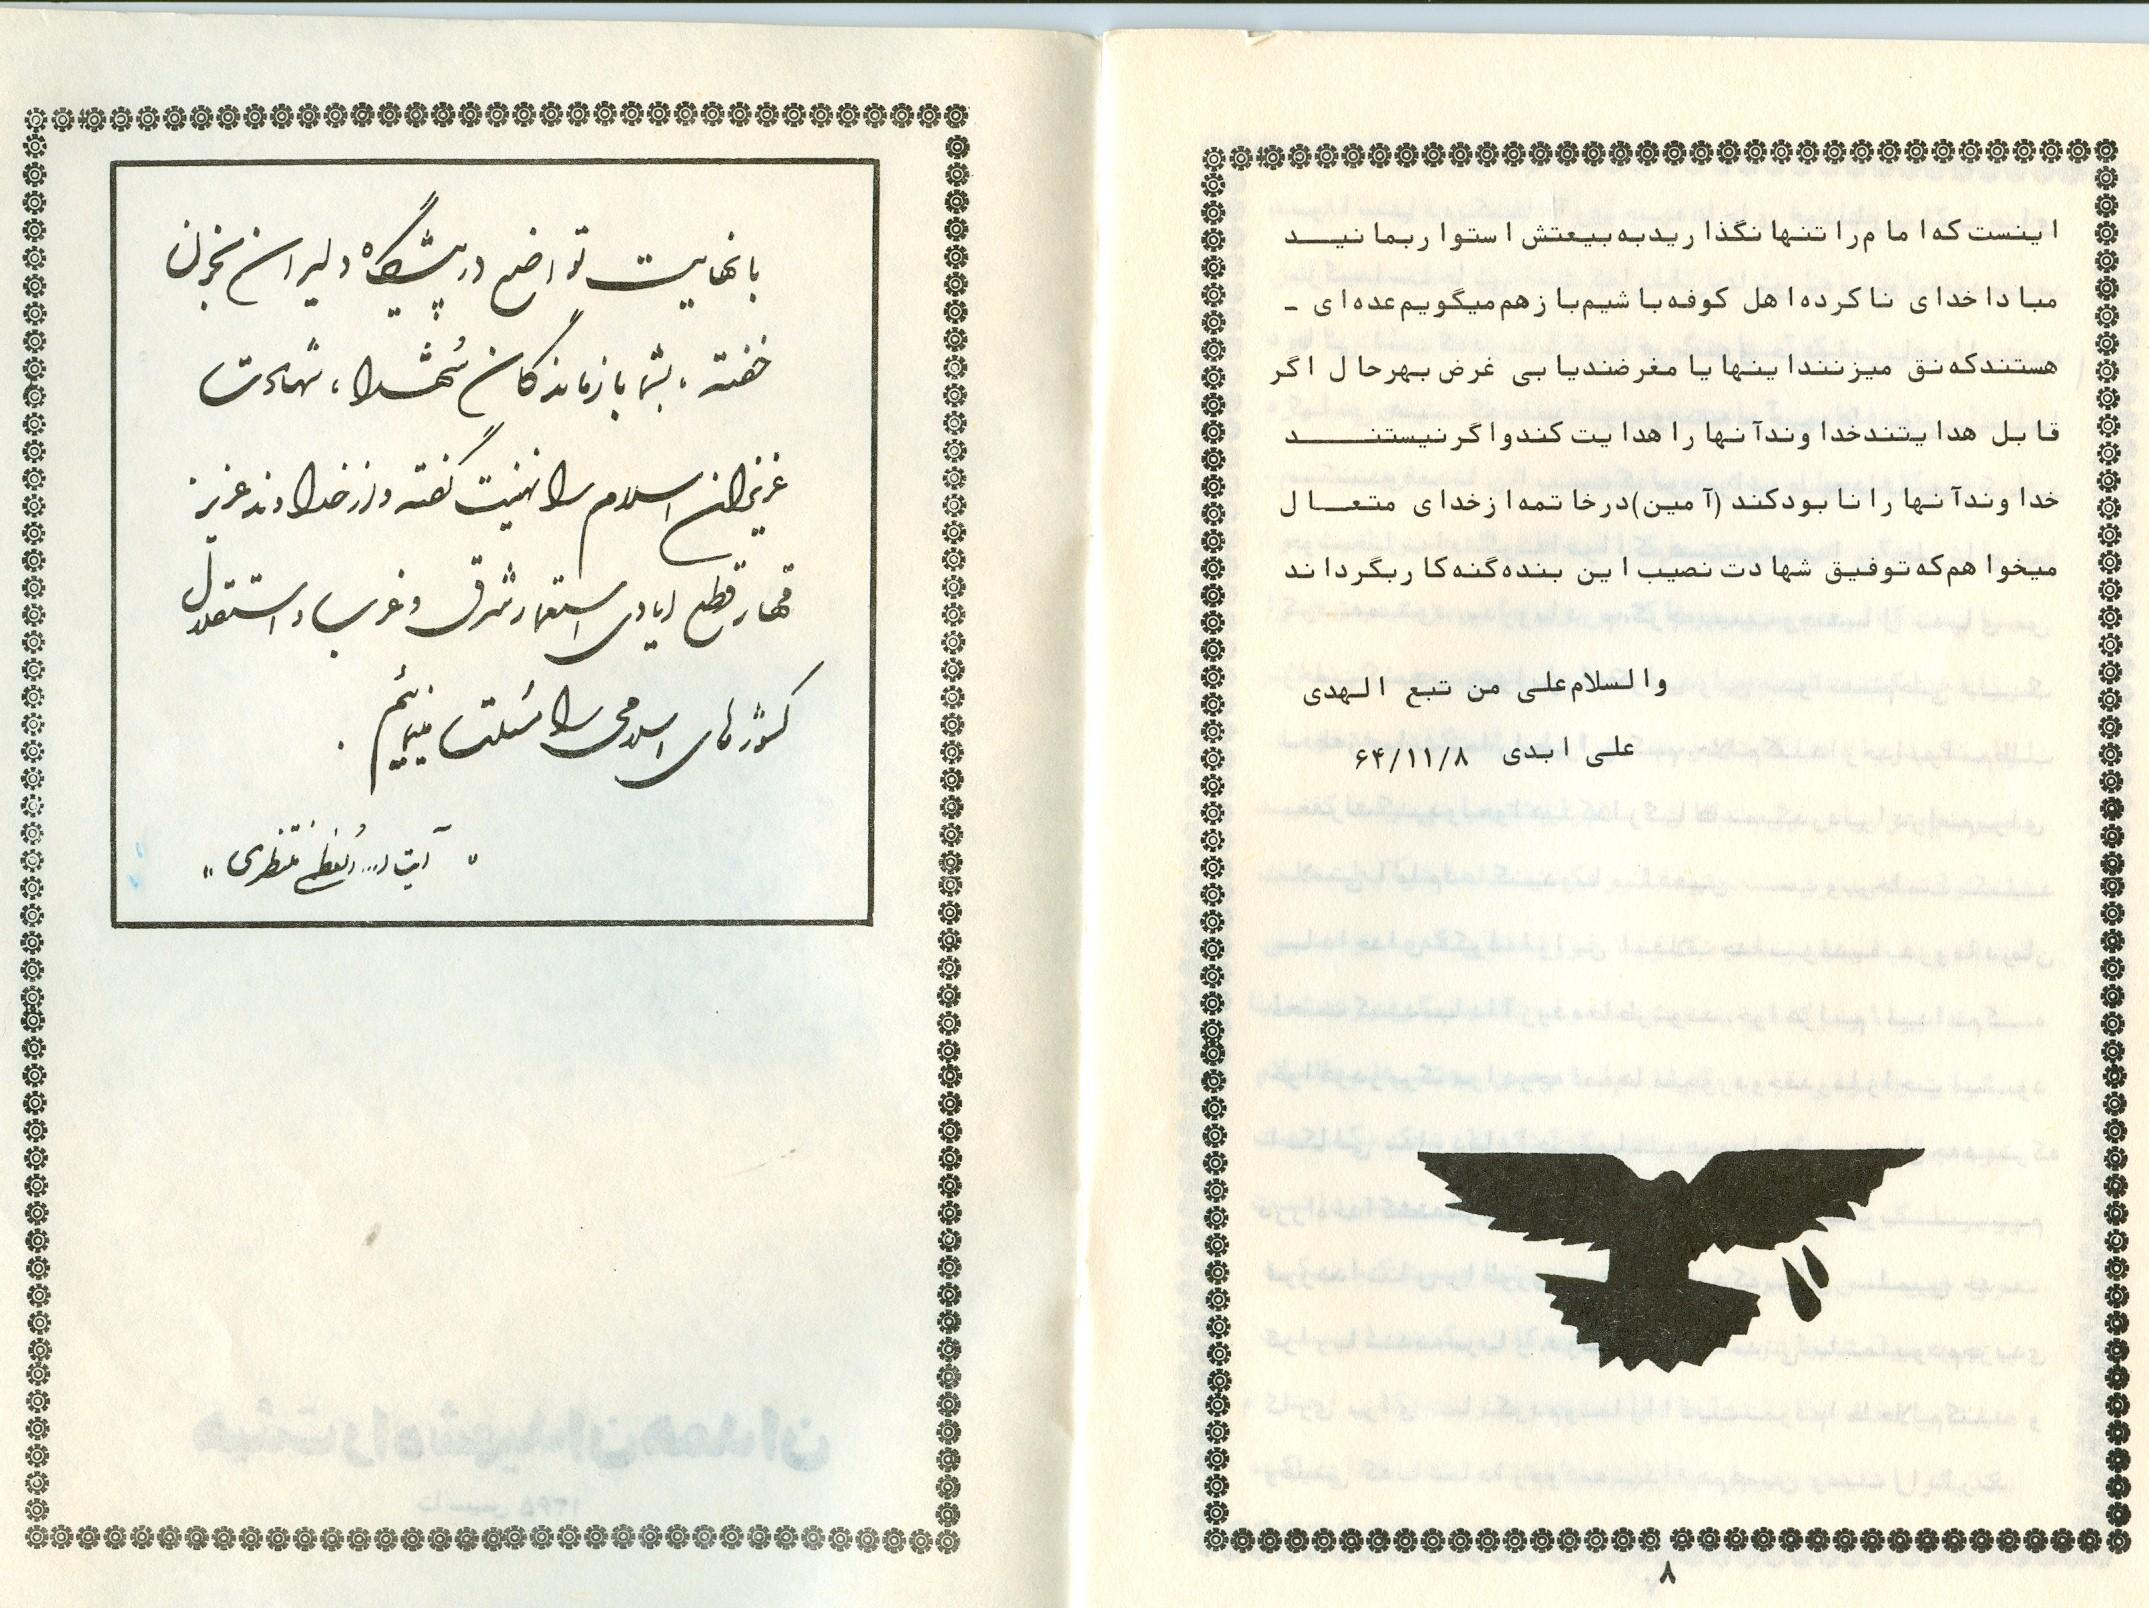 اینست که امام را تنها نگذارید به بیعتش استوار بمانید
مبادا خدای ناکرده اهل کوفه باشیم باز هم میگویم عده‌ای -
هستند که نق میزنند اینها یا مغرضند یا بی غرض بهر حال اگر
قابل هدایتند خداوند آنها را هدایت کند و اگر نیستند
خداوند آنها را نابود کند (آمین) در خاتمه از خدای متعال
میخواهم که توفیق شهادت نصیب این بنده گنه کار بگرداند
والسلام علی من تبع الهدی
علی ابدی ۶۴/۱۱/۸
۸
با نهایت تواضع در پیشگاه دلیران بخون
خفته ، بشما بازماندگان شهدا ، شهادت
عزیزان اسلام را تهنیت گفته و از خداوند عزیز
قهار قطع ایادی استعمار شرق و غرب و استقلال
کشورهای اسلامی را مسئلت مینمایم .
" آیت ا... العظمی منتظری "